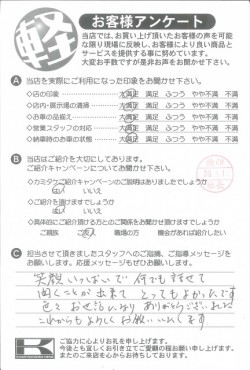 軽
お客様アンケート
当店では、お買い上げ頂いたお客様の声を可能
な限り現場に反映し、お客様により良い商品と
サービスを提供する事に努めています。
大変お手数ですが是非お声をお聞かせ下さい。
A 当店を実際にご利用になった印象をお聞かせ下さい。
◇店の印象 大満足 満足 ふつう やや不満 不満
◇店内・展示場の清掃 大満足 満足 ふつう やや不満 不満
◇お車の品揃え 大満足 満足 ふつう やや不満 不満
◇営業スタッフの対応 大満足 満足 ふつう やや不満 不満
◇納車時のお車の状態 大満足 満足 ふつう やや不満 不満
B 当店はご紹介を大切にしております。
ご紹介キャンペーンについてお聞かせ下さい。
◇カミタケご紹介キャンペーンのご説明はありましたでしょうか
はい いいえ
◇ご紹介を頂けますでしょうか
はい いいえ
◇具体的にご紹介頂ける方とのご関係をお聞かせ頂けますでしょうか
ご親族 ご友人 職場の方 機会があれば紹介したい
C 担当させて頂きましたスタッフへのご指摘、ご指導メッセージを
お願いします。応援メッセージもぜひお願いします。
笑顔いっぱいで何でも話せて
聞くことが出来てとってもよかったです
色々お世話になりありがとうございました
これからもよろしくお願いいたします
K
ご協力に心よりお礼を申し上げます。
今後とも宜しくお引き立てご愛顧の程お願い申し上げます。
またのご来店を心からお待ちしております。